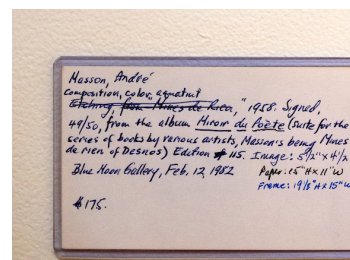 Masson, André
Composition, color aquatint
Etching, from "Mines de Rien," 1958. Signed,
49/50, from the album Miroir du Poète (suite for the
series of books by various artists, Masson's being Mines
de rien of Desnos) Edition # 115. Image: 5½" x 4½
Blue Moon Gallery, Feb. 12, 1982 Paper: 15" H x 11" W
Frame: 19⅛" H x 15" W
$175.